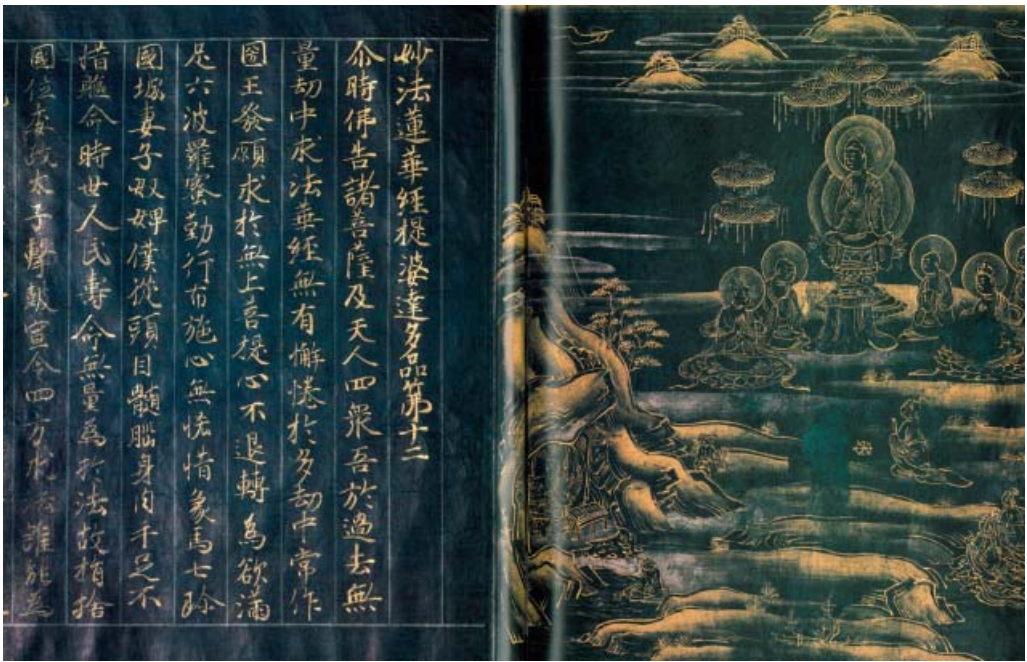 妙法蓮華經提婆達多品第十二
尒時佛告諸菩薩及天人四眾吾於過去無
量劫中求法華經無有懈惓於多劫中常作
國王發願求於無上菩提心不退轉為欲滿
足六波羅蜜勤行布施心無悋惜象馬七珍
國城妻子奴婢僕從頭目髓腦身肉手足不
惜軀命時世人民壽命無量為於法故捐捨
國位委政太子擊鼓宣令四方求法誰能為